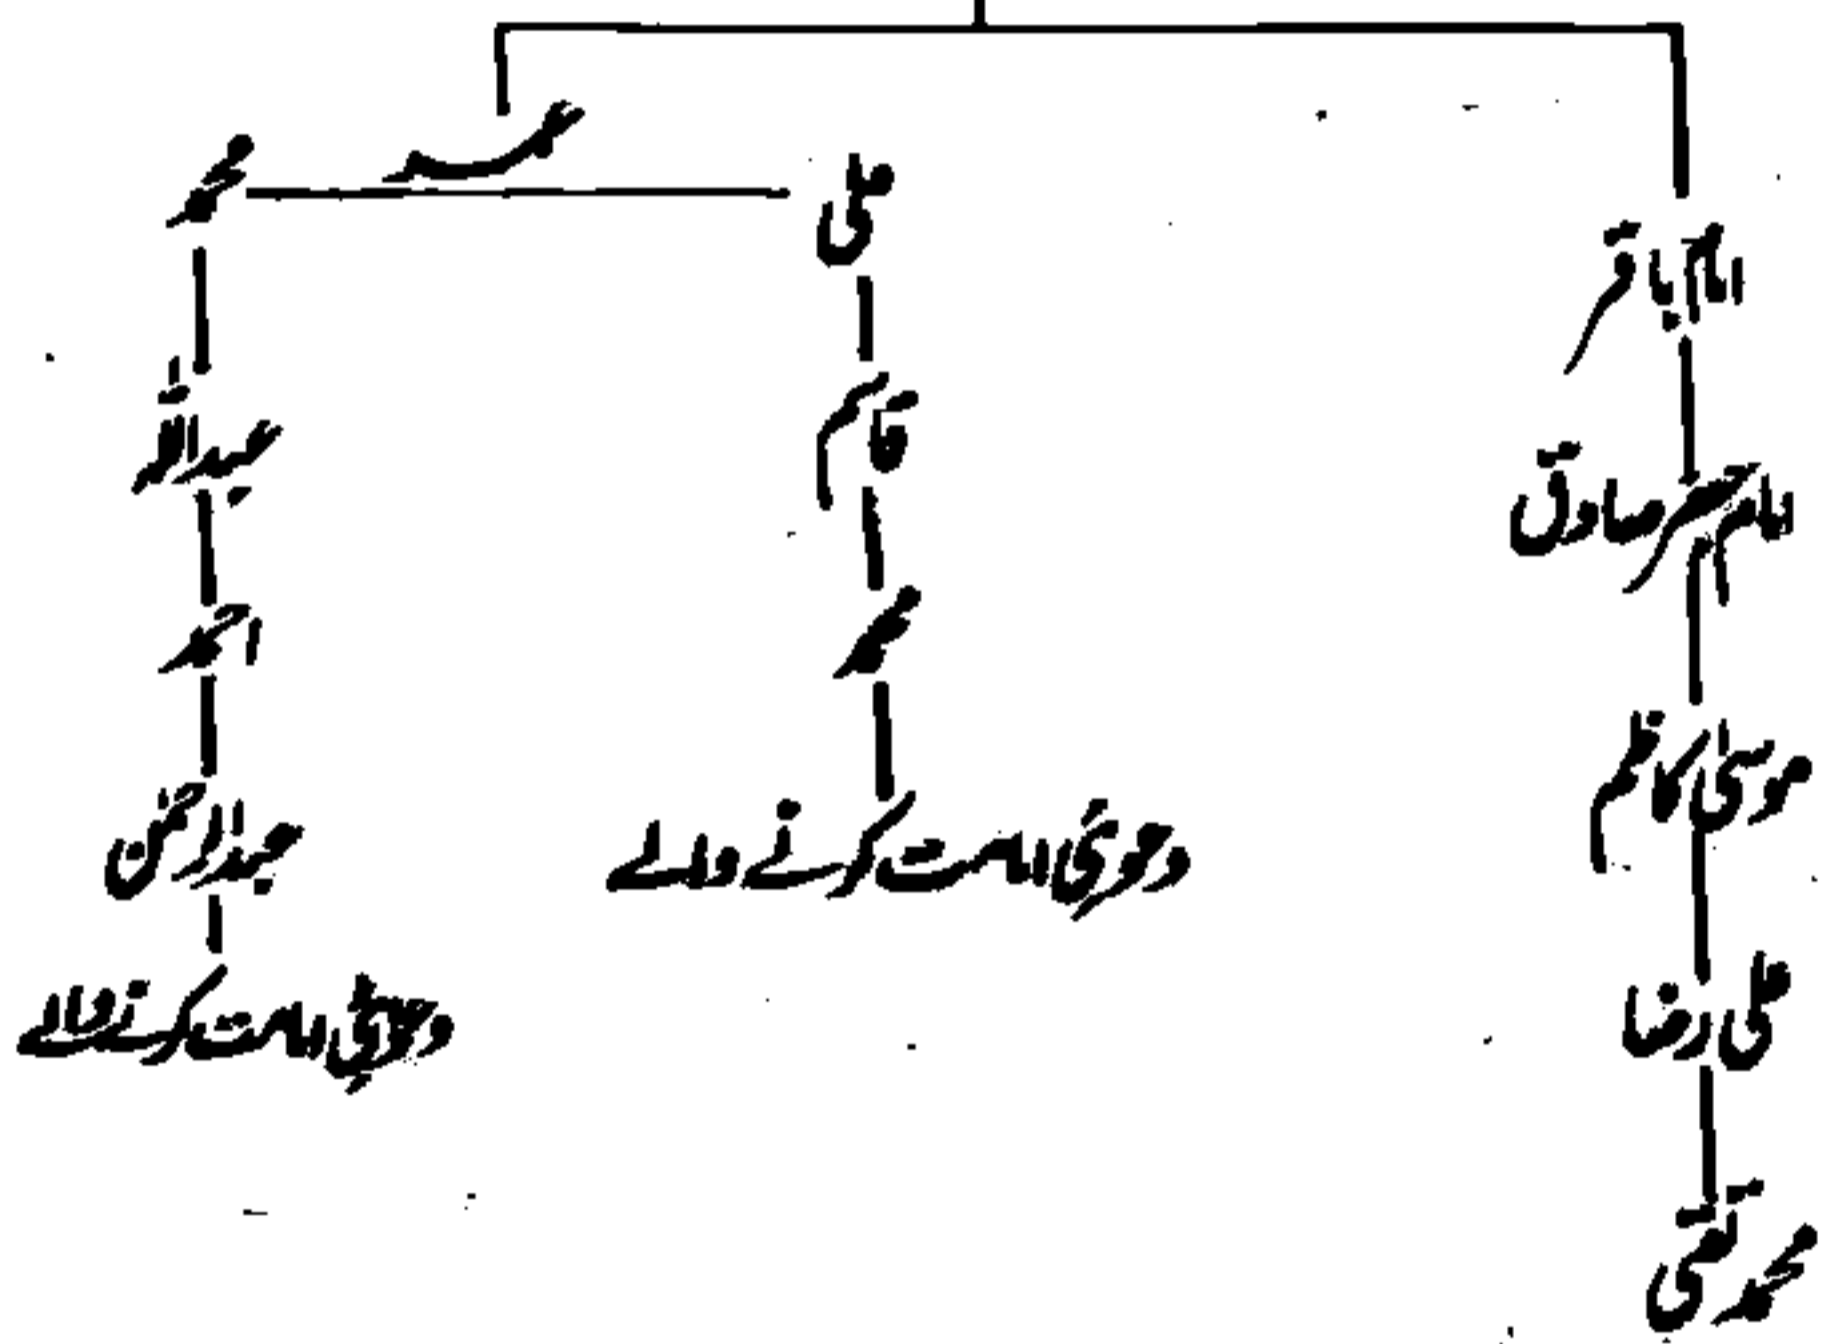 عمر
امام باقر
امام جعفر صادق
موسیٰ کاظم
علی رضا
محمد تقی
علی
قاسم
محمد
دعویٰٔ امامت کرنے والے
محمد
عبداللہ
احمد
عبدالرحمٰن
دعویٰٔ امامت کرنے والے